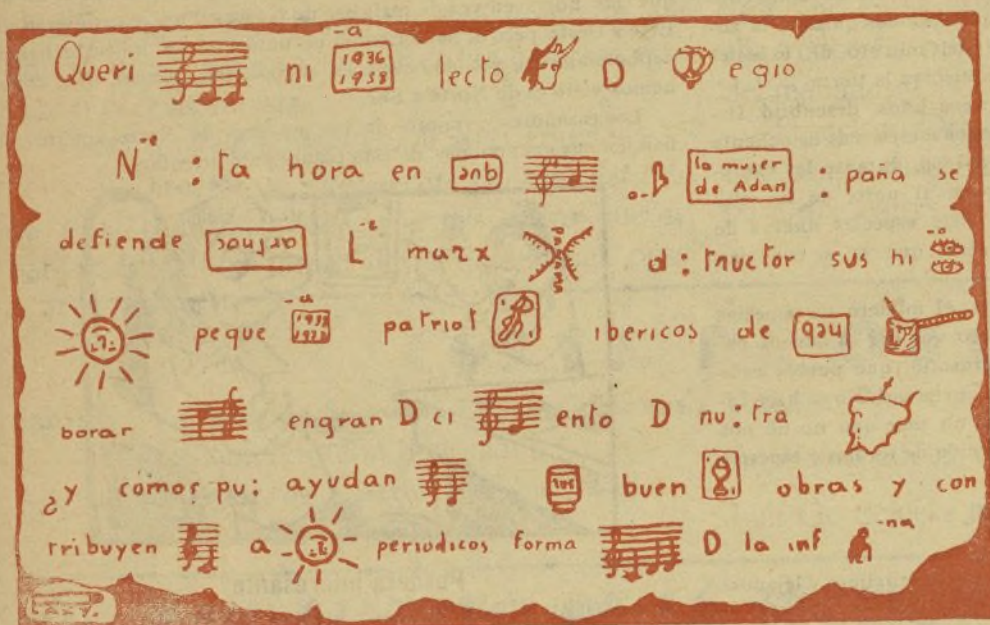 Queri ni -a 1936 1938 lecto D egio
N -e : ta hora en que la mujer de Adan : paña se
defiende artnoc L -e marx PANAMA d : tructor sus hi -o
peque -a patriot ibericos de
borar engran D ci ento D nu : tra
¿y cómo? pu : ayudan buen obras y con
tribuyen a periodicos forma D la inf -na